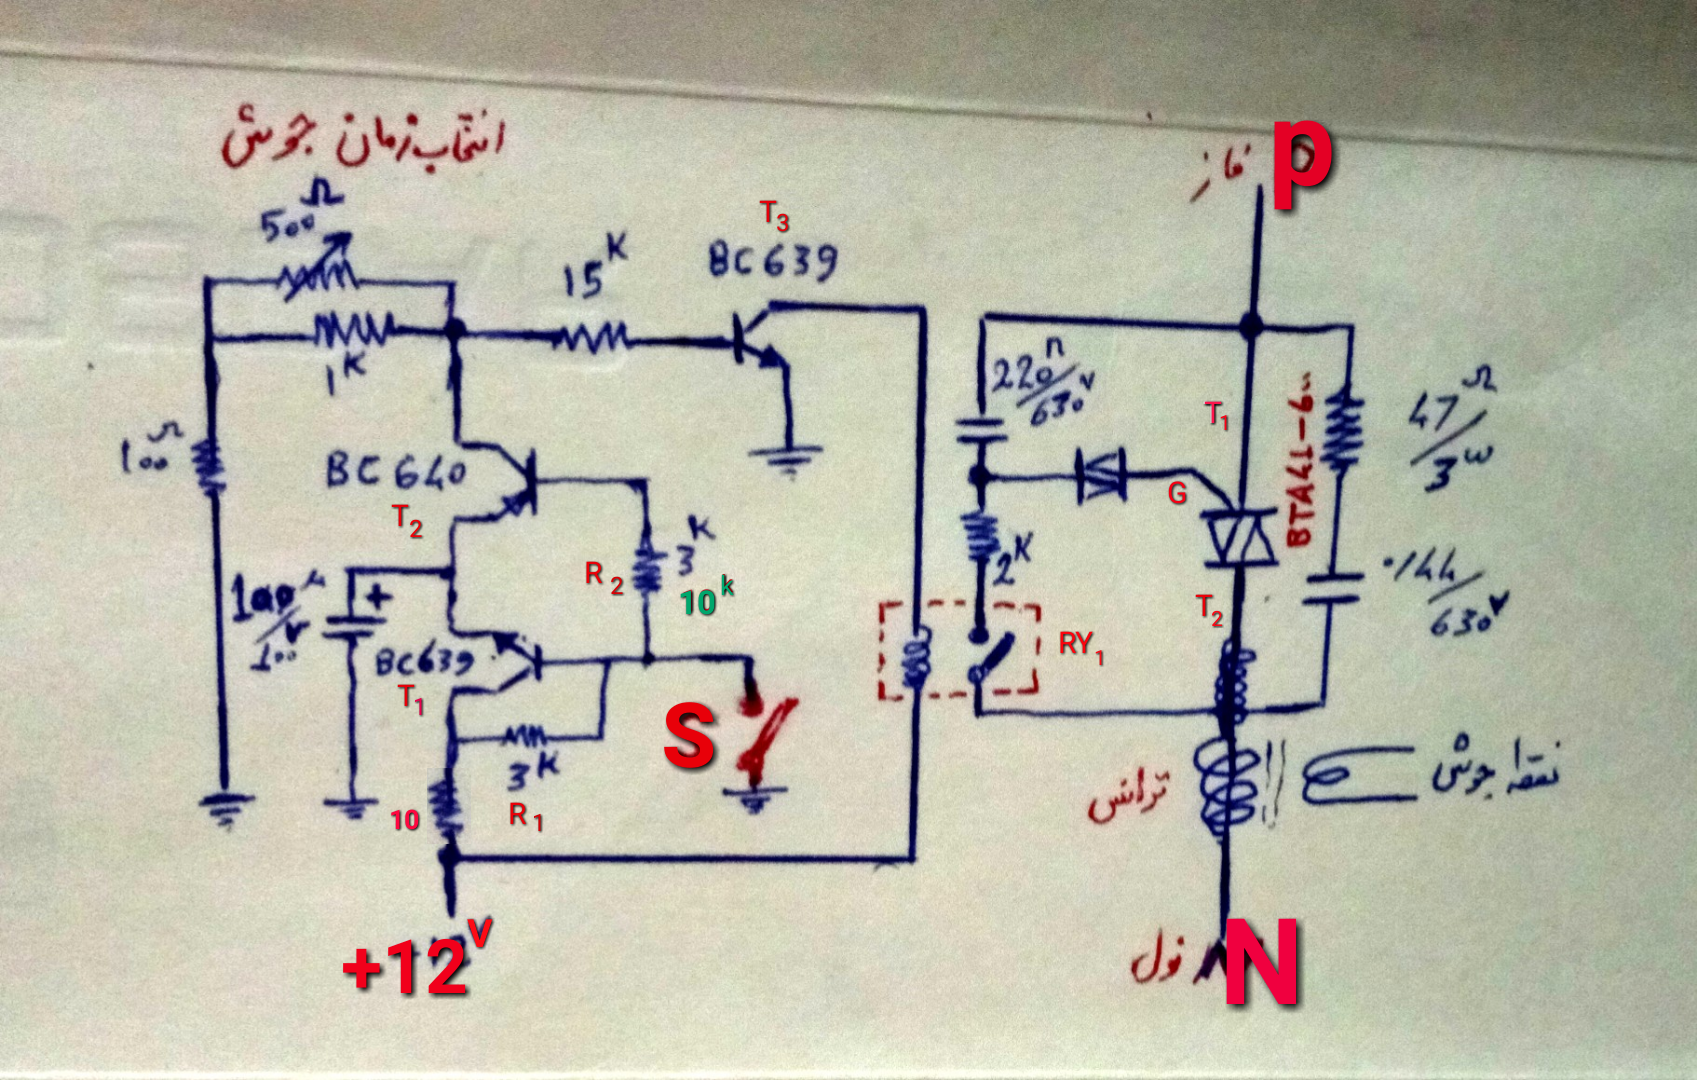 انتخاب زمان جوش
500Ω
1K
15K
T3
BC639
100Ω
BC640
T2
3K
R2
10k
100µ/100v
+
BC639
T1
3K
R1
10
S
+12v
فاز
p
220n/630v
T1
G
BTA41-600
47Ω/3W
2K
T2
0/44/630V
RY1
ترانس
نقطه جوش
نول
N